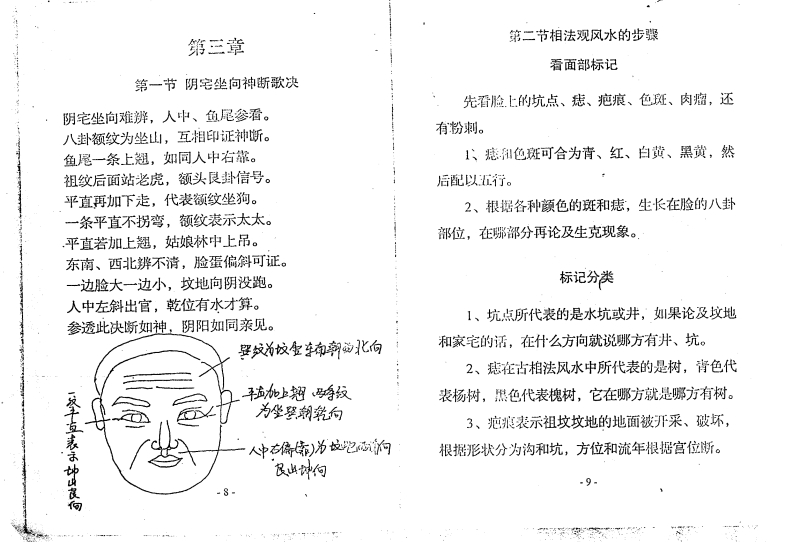 第三章
第一节 阴宅坐向神断歌决
阴宅坐向难辨，人中、鱼尾参看。
八卦额纹为坐山，互相印证神断。
鱼尾一条上翘，如同人中右靠。
祖纹后面站老虎，额头艮卦信号。
平直再加下走，代表额纹坐狗。
一条平直不拐弯，额纹表示太太。
平直若加上翘，姑娘林中上吊。
东南、西北辨不清，脸蛋偏斜可证。
一边脸大一边小，坟地向阴没跑。
人中左斜出官，乾位有水才算。
参透此决断如神，阴阳如同亲见。
巽纹为坟坐东南朝西北向
平直加上翘
为坐巽朝乾向
一纹平直表示坤山艮向
人中右偏(靠)为坟
艮山坤向
-8-
第二节相法观风水的步骤
看面部标记
先看脸上的坑点、痣、疤痕、色斑、肉瘤，还
有粉刺。
1、痣和色斑可合为青、红、白黄、黑黄，然
后配以五行。
2、根据各种颜色的斑和痣，生长在脸的八卦
部位，在哪部分再论及生克现象。
标记分类
1、坑点所代表的是水坑或井，如果论及坟地
和家宅的话，在什么方向就说哪方有井、坑。
2、痣在古相法风水中所代表的是树，青色代
表杨树，黑色代表槐树，它在哪方就是哪方有树。
3、疤痕表示祖坟坟地的地面被开采、破坏，
根据形状分为沟和坑，方位和流年根据宫位断。
-9-